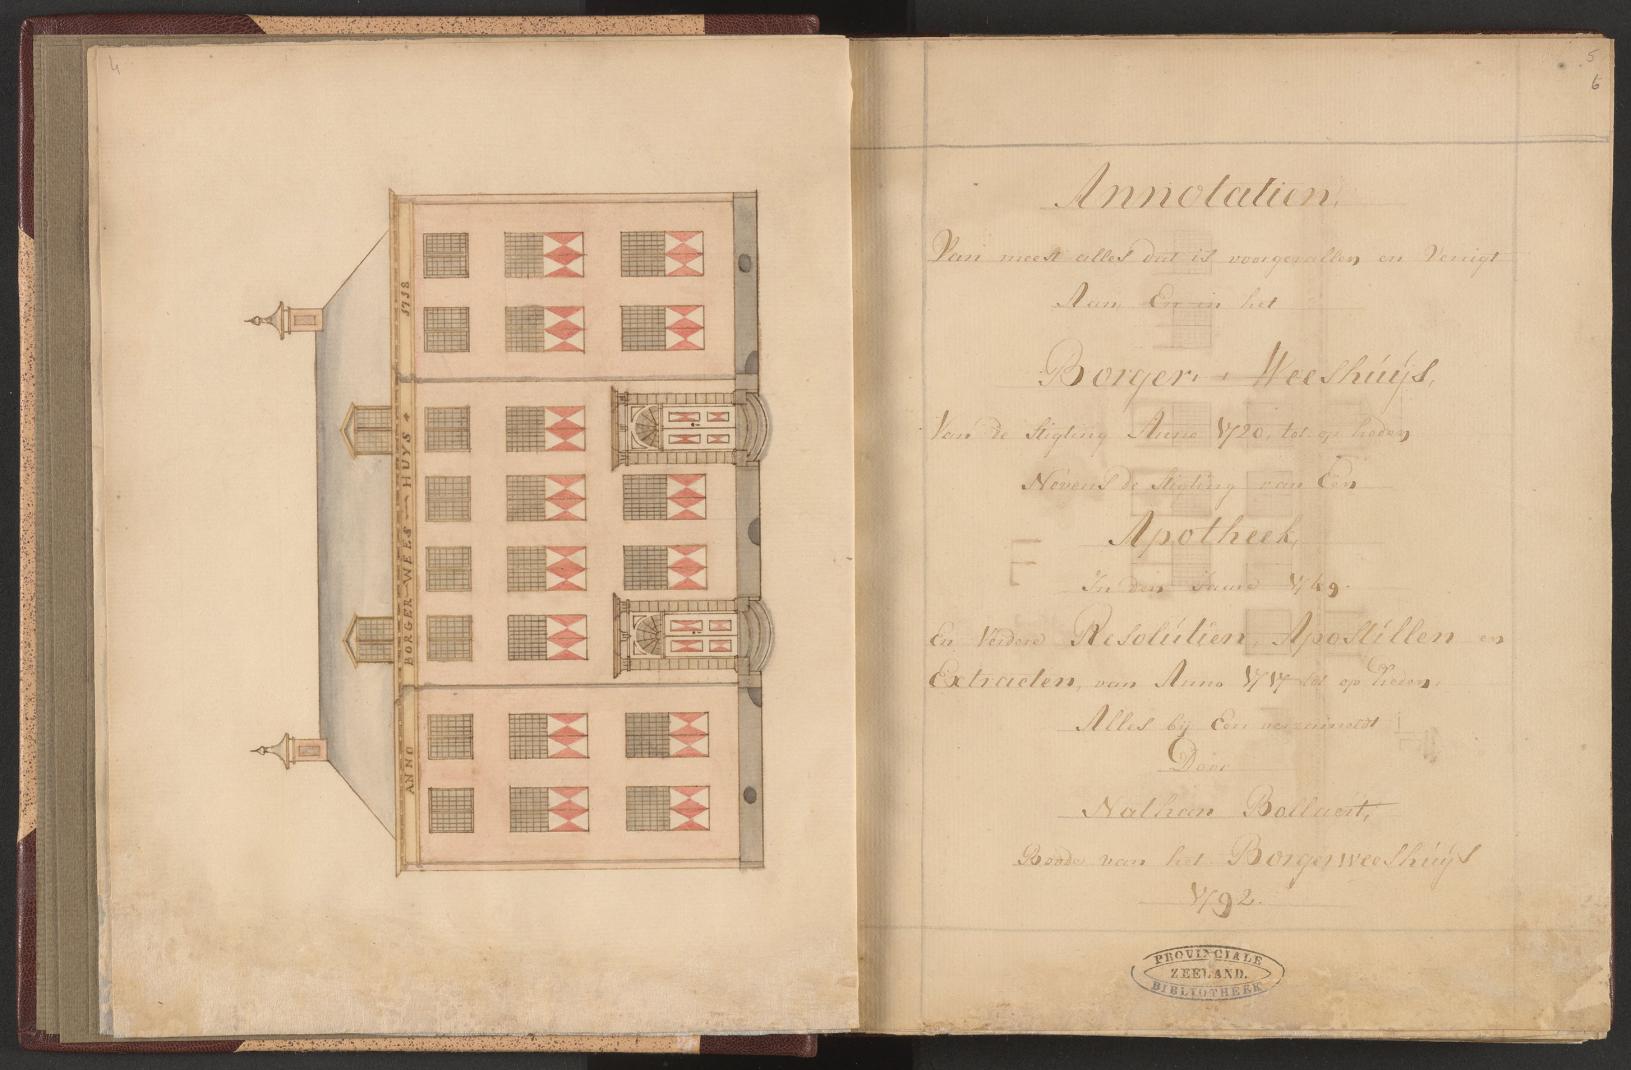 4
ANNO BORGER-WEES-HUYS 1718
5
6
Annotatien,
Van meest alles dat is voorgevallen en Verrigt
Aan En in het
Borger, Weeshuijs,
Van de Stigting Anno 1720, tot op heden
Nevens de Stigting van Een
Apotheek,
In den Jaare 1749.
En Verdere Resolutien, Apostillen en
Extracten, van Anno 1717 tot op heden,
Alles bij Een versameldt
Door
Nathan Bollaert,
Boode van het Borgerweeshuijs
1792.
PROVINCIALE
ZEELAND.
BIBLIOTHEEK